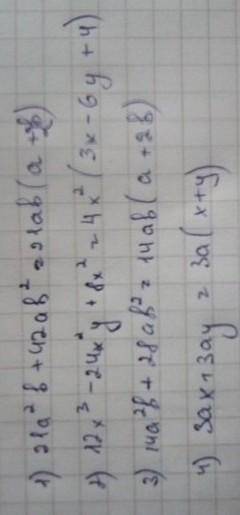 1) 21a²b + 42ab² = 21ab(a + 2b)
2) 12x³ - 24x²y + 8x² = 4x²(3x - 6y + 4)
3) 14a²b + 28ab² = 14ab(a + 2b)
4) 3ax + 3ay = 3a(x+y)